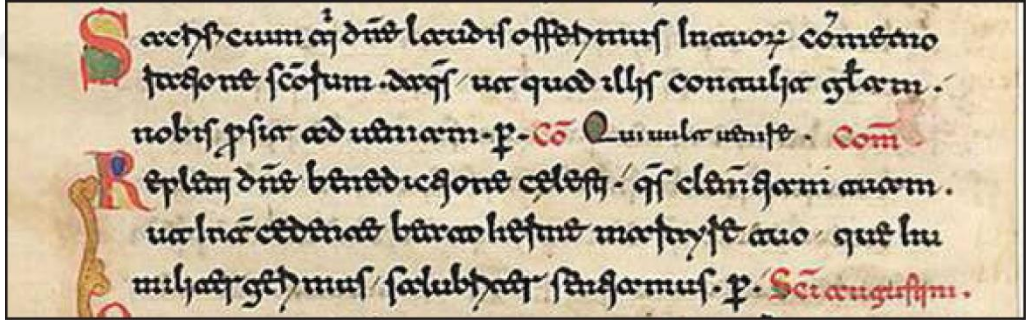 Sacrificium tⁱ dn̄e laudis offerimus Intuoꝝ cōmemo
ratione sc̄orum · da qs̄ / ut quod illis contulit gl̄am ·
nobis ꝓsit ad ueniam · p̄ · Cō Qui uult uenire · Com̄
Repleti dn̄e benedictione celesti / qs̄ clem̄tiam tuam ·
ut Int̄cedente beato herme martyre tuo · que hu
militer gerimus / salubriter sentiamus · p̄ · Sc̄i augustini ·